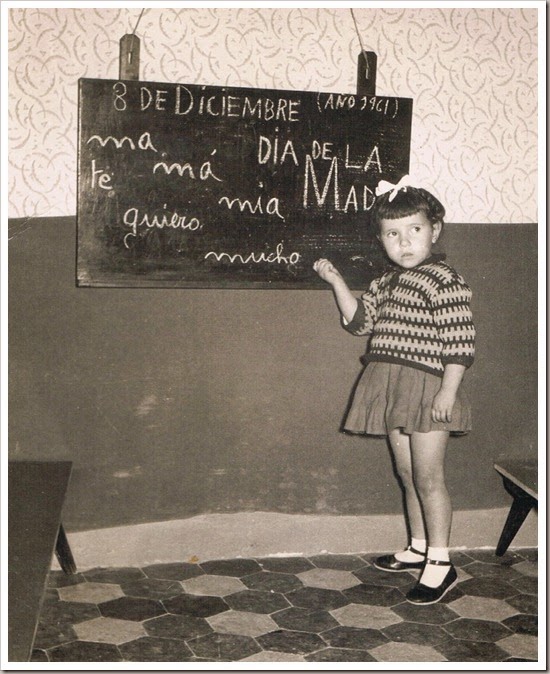 8 DE DICIEMBRE (AÑO 1961)
DIA DE LA
MAD
ma má mia
te quiero
mucho